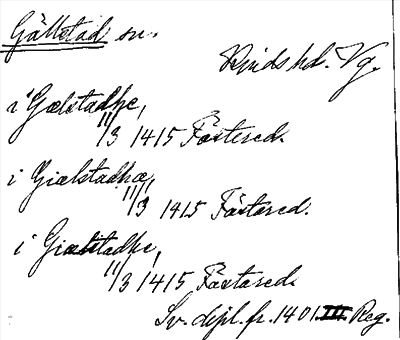 Gällstad sn.
Kinds hd. Vg.
i Gælstadhe,
11/3 1415 Fästered.
i Giælstadha,
11/3 1415 Fästared.
i Giælstadhe,
11/3 1415 Fästared.
Sv. dipl. fr. 1401. III. Reg.